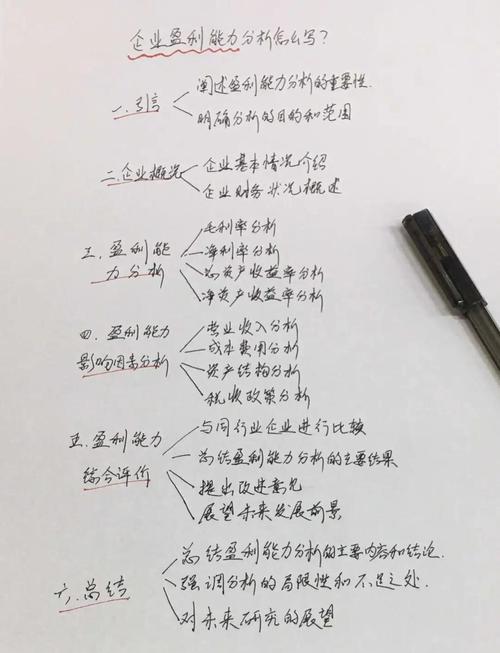 企业盈利能力分析怎么写?
一.引言
阐述盈利能力分析的重要性.
明确分析的目的和范围
二.企业概况
企业基本情况介绍
企业财务状况概述
三.盈利能
力分析
毛利率分析
净利率分析
总资产收益率分析
净资产收益率分析
四.盈利能力
影响因素分析
营业收入分析
成本费用分析
资产结构分析
税收政策分析
五.盈利能力
综合评价
与同行业企业进行比较
总结盈利能力分析的主要结果
提出改进意见
展望未来发展前景
六.总结
总结盈利能力分析的主要内容和结论.
强调分析的局限性和不足之处.
对未来研究的展望